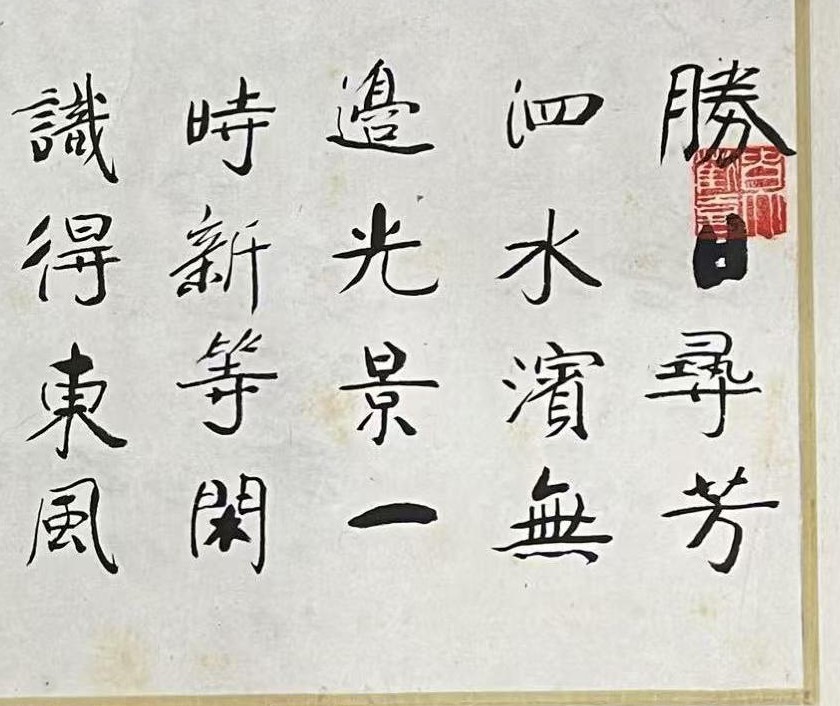 勝日尋芳
泗水濱無
邉光景一
時新等閑
識得東風